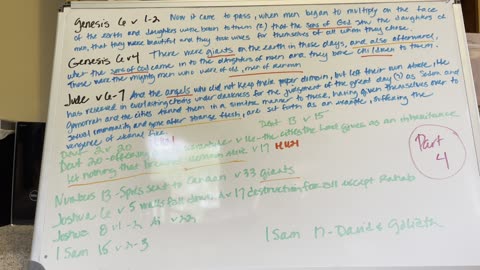 Genesis 6 v 1-2 Now it came to pass, when men began to multiply on the face
of the earth and daughters were born to them (2) that the sons of God saw the daughters of
men, that they were beautiful and they took wives for themselves of all whom they chose.
Genesis 6 v 4 There were giants on the earth in those days, and also afterward,
when the sons of God came in to the daughters of men and they bore children to them.
Those were the mighty men who were of old, men of renown.
Jude v 6-7 And the angels who did not keep their proper domain, but left their own abode, He
has reserved in everlasting chains under darkness for the judgement of the great day (7) as Sodom and
Gomorrah and the cities around them in a similar manner to these, having given themselves over to
sexual immorality and gone after strange flesh, are set forth as an example, suffering the
vengeance of eternal fire.
Deut 2 v 20 Deut 13 v 15
Deut 20 - offering v 16 - the cities the Lord gives as an inheritance
let nothing that breathes remain alive v 17
Numbers 13 - Spies sent to Canaan v 33 giants
Joshua 6 v 5 walls fall down v 17 destruction for all except Rahab
Joshua 8 v 1-2 Ai v 22
1 Sam 15 v 2-3
1 Sam 17 - David & Goliath
Part
4